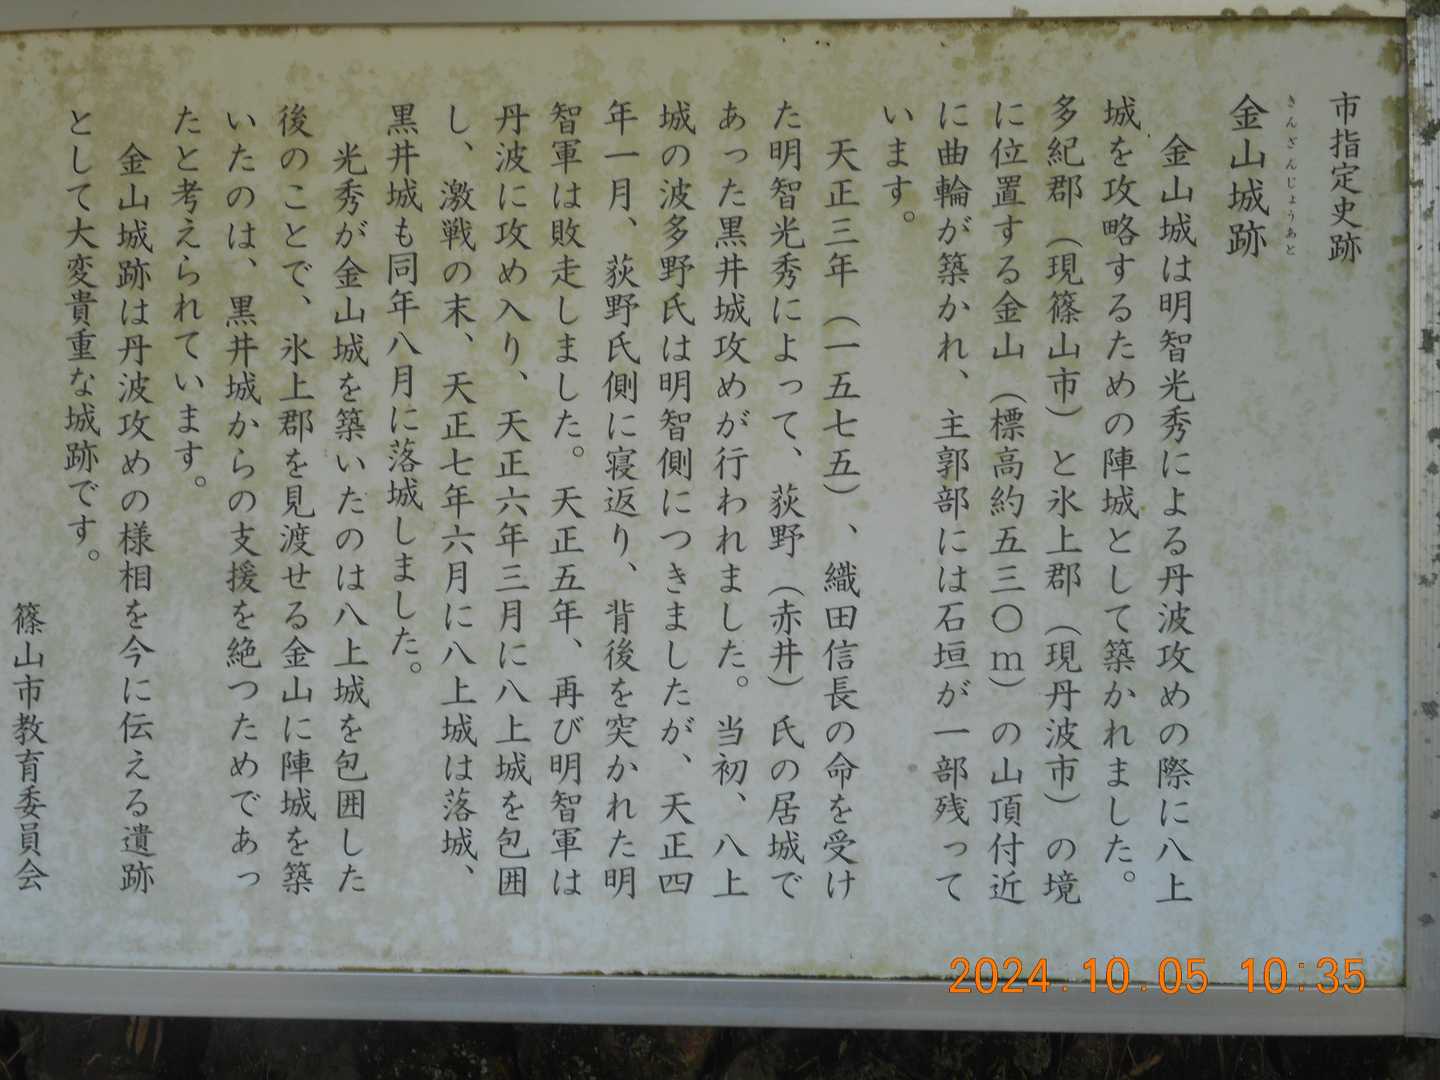 市指定史跡
きんざんじょうあと
金山城跡
金山城は明智光秀による丹波攻めの際に八上
城を攻略するための陣城として築かれました。
多紀郡（現篠山市）と氷上郡（現丹波市）の境
に位置する金山（標高約五三〇ｍ）の山頂付近
に曲輪が築かれ、主郭部には石垣が一部残って
います。
天正三年（一五七五）、織田信長の命を受け
た明智光秀によって、荻野（赤井）氏の居城で
あった黒井城攻めが行われました。当初、八上
城の波多野氏は明智側につきましたが、天正四
年一月、荻野氏側に寝返り、背後を突かれた明
智軍は敗走しました。天正五年、再び明智軍は
丹波に攻め入り、天正六年三月に八上城を包囲
し、激戦の末、天正七年六月に八上城は落城、
黒井城も同年八月に落城しました。
光秀が金山城を築いたのは八上城を包囲した
後のことで、氷上郡を見渡せる金山に陣城を築
いたのは、黒井城からの支援を絶つためであっ
たと考えられています。
金山城跡は丹波攻めの様相を今に伝える遺跡
として大変貴重な城跡です。
篠山市教育委員会
2024.10.05 10:35